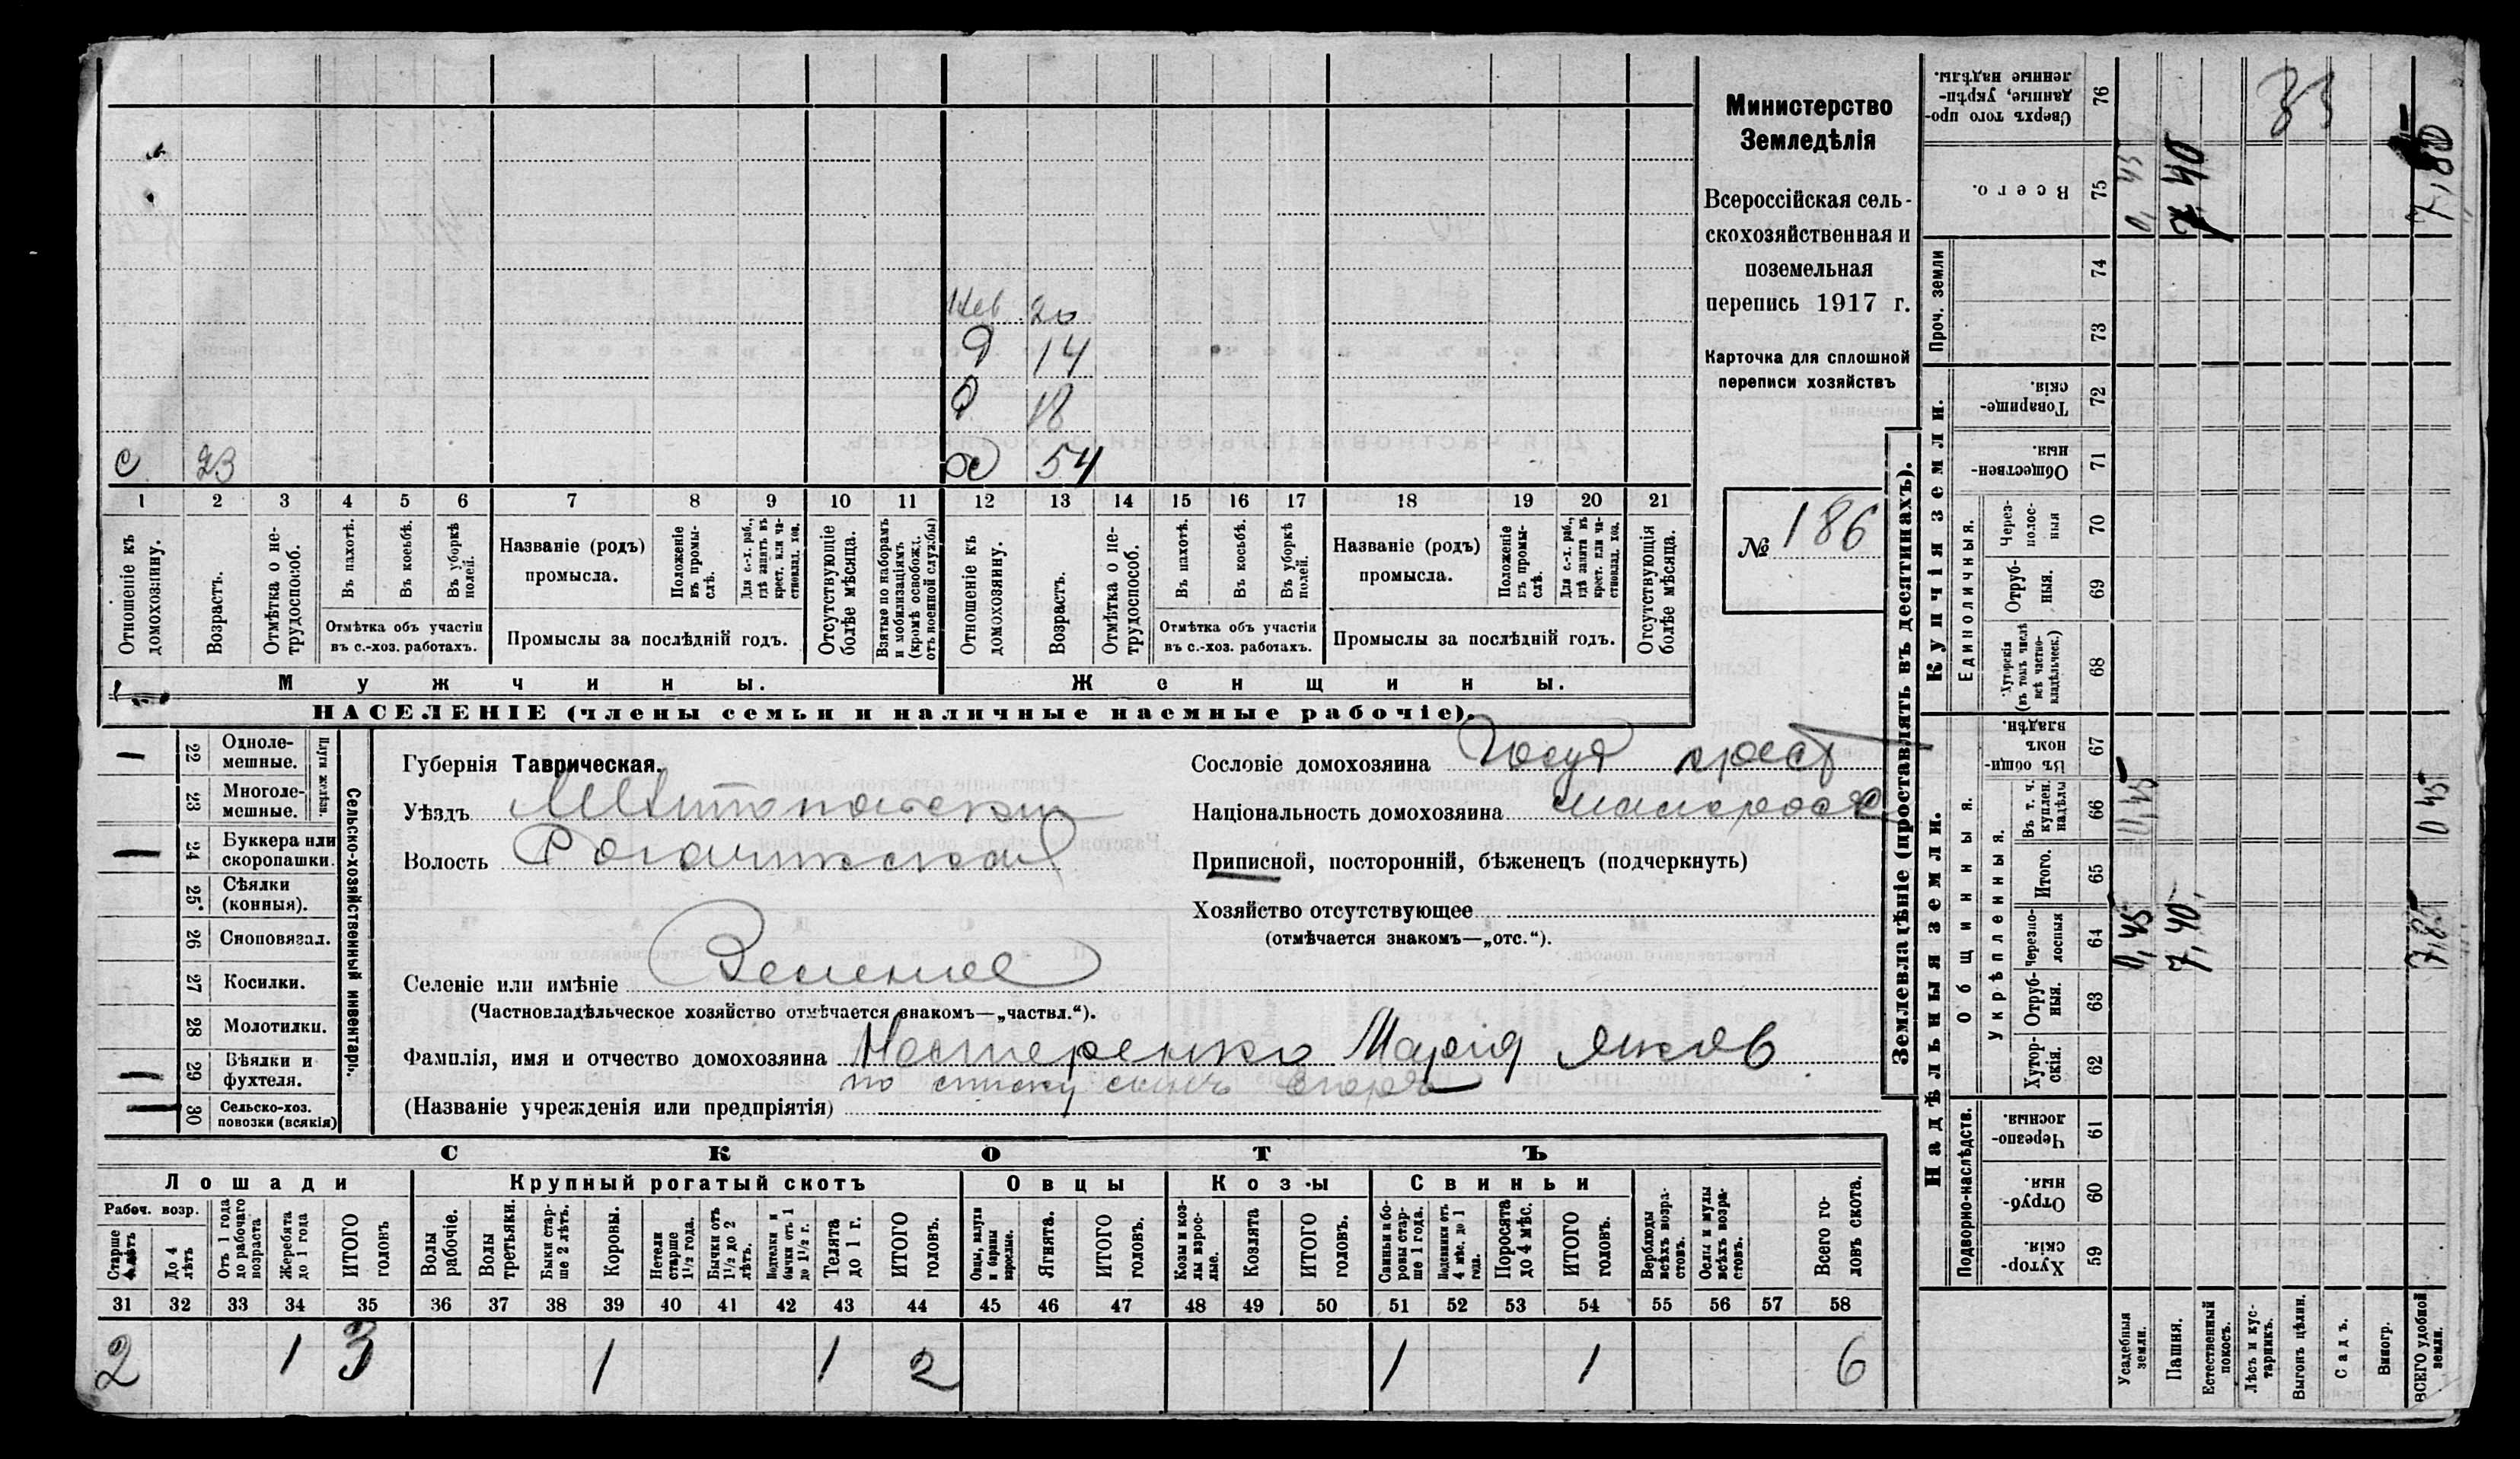 Министерство
Земледѣлія
Всероссійская сель-
скохозяйственная и
поземельная
перепись 1917 г.
Карточка для сплошной
переписи хозяйствъ
№ 186
20
Д 14
Д 18
с 23
54
1 2 3 4 5 6 7 8 9 10 11 12 13 14 15 16 17 18 19 20 21
Отношеніе къ домохозяину.
Возрастъ.
Отмѣтка о не-трудоспособ.
Въ пахотѣ.
Въ косьбѣ.
Въ уборкѣ полей.
Отмѣтка объ участіи
въ с.-хоз. работахъ.
Названіе (родъ)
промысла.
Положеніе въ промы-слѣ.
Для с.-х. раб., гдѣ занятъ въ крест. или ча-стновлад. хоз.
Промыслы за послѣдній годъ.
Отсутствующіе болѣе мѣсяца.
Взятые по наборамъ и мобилизаціямъ (кромѣ освобожд. отъ военной службы)
Отношеніе къ домохозяину.
Возрастъ.
Отмѣтка о не-трудоспособ.
Въ пахотѣ.
Въ косьбѣ.
Въ уборкѣ полей.
Отмѣтка объ участіи
въ с.-хоз. работахъ.
Названіе (родъ)
промысла.
Положеніе въ промы-слѣ.
Для с.-х. раб., гдѣ занята въ крест. или ча-стновлад. хоз.
Промыслы за послѣдній годъ.
Отсутствующія болѣе мѣсяца.
Мужчины.
Женщины.
НАСЕЛЕНІЕ (члены семьи и наличные наемные рабочіе).
Сельско-хозяйственный инвентарь.
Плуги желѣз.
22 Одноле-мешные.
23 Многоле-мешные.
24 Буккера или скоропашки.
25 Сѣялки (конныя).
26 Сноповязал.
27 Косилки.
28 Молотилки.
29 Вѣялки и фухтеля.
30 Сельско-хоз. повозки (всякія)
Губернія Таврическая.
Уѣздъ Мелитопольскій
Волость Рогачикская
Селеніе или имѣніе
(Частновладѣльческое хозяйство отмѣчается знакомъ—„частвл.“).
Сословіе домохозяина Госуд крест
Національность домохозяина малоросс
Приписной, посторонній, бѣженецъ (подчеркнуть)
Хозяйство отсутствующее
(отмѣчается знакомъ—„отс.“).
Фамилія, имя и отчество домохозяина Нестеренко Марія Яковл
по списку сынъ Егоръ
(Названіе учрежденія или предпріятія)
СКОТЪ
Лошади
Крупный рогатый скотъ
Овцы
Козы
Свиньи
Рабоч. возр.
Старше 4 лѣтъ
До 4 лѣтъ
Отъ 1 года до рабочаго возраста
Жеребята до 1 года
ИТОГО головъ
Волы рабочіе.
Волы третьяки.
Быки стар-ше 2 лѣтъ.
Коровы.
Нетели старше 1½ года.
Бычки отъ 1½ до 2 лѣтъ.
Подтелки и бычки отъ 1 до 1½ г.
Телята до 1 г.
ИТОГО головъ.
Овцы, валухи и бараны взрослые.
Ягнята.
ИТОГО головъ.
Козы и коз-лы взрос-лые.
Козлята
ИТОГО головъ.
Свиньи и бо-ровы стар-ше 1 года.
Подсвинки отъ 4 мѣс. до 1 года.
Поросята до 4 мѣс.
ИТОГО головъ.
Верблюды всѣхъ возра-стовъ.
Ослы и мулы всѣхъ возра-стовъ.
Всего го-ловъ скота.
31 32 33 34 35 36 37 38 39 40 41 42 43 44 45 46 47 48 49 50 51 52 53 54 55 56 57 58
2 1 3 1 1 2 1 1 6
Землевладѣніе (проставлять въ десятинахъ).
Надѣльныя земли.
Купчія земли.
Проч. земли
Подворно-наслѣдств.
Общинныя.
Укрѣпленныя.
Единоличныя.
59 Хутор-скія.
60 Отруб-ныя.
61 Черезпо-лосныя
62 Хутор-скія.
63 Отруб-ныя.
64 Черезпо-лосныя
65 Итого.
66 Въ т. ч. куплен. надѣлы
67 Въ общи-номъ владѣн.
68 Хуторскія (въ томъ числѣ всѣ частно-владѣльческ.)
69 Отруб-ныя.
70 Через-полос-ныя
71 Обществен-ныя.
72 Товарище-скія.
73
74
75 Всего.
76 Сверхъ того про-данные, укрѣп-ленные надѣлы.
Усадебныя земли. 0,45 0,45 0,45
Пашня. 7,40 7,40
Естественный покосъ.
Лѣсъ и кус-тарникъ.
Выгонъ цѣлин.
Садъ.
Виногр.
ВСЕГО удобной земли. 7,85 0 45